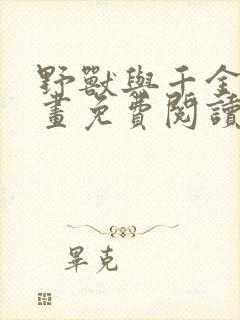 野獸與千金
畫免費閱讀
畢克